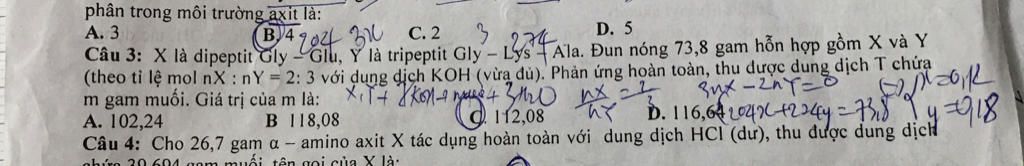 phân trong môi trường axit là:
A. 3 B. 4 C. 2 D. 5
204 3x 3 274
Câu 3: X là dipeptit Gly – Glu, Y là tripeptit Gly – Lys – Ala. Đun nóng 73,8 gam hỗn hợp gồm X và Y
(theo tỉ lệ mol nX : nY = 2: 3 với dung dịch KOH (vừa đủ). Phản ứng hoàn toàn, thu được dung dịch T chứa
3nX – 2nY = 0 x = 0,12
m gam muối. Giá trị của m là:
X, Y + KOH → + 3 H2O nX/nY = 2/3
A. 102,24 B 118,08 C. 112,08 D. 116,64
204x + 274y = 73,8 y = 0,18
Câu 4: Cho 26,7 gam α – amino axit X tác dụng hoàn toàn với dung dịch HCl (dư), thu được dung dịch
chứa 30,604 gam muối, tên gọi của X là: